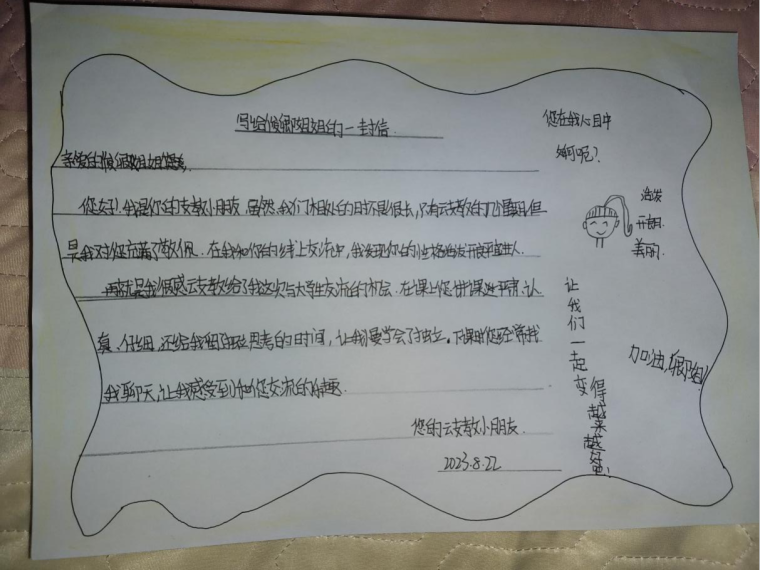 写给侯卿姐姐的一封信
亲爱的侯卿姐姐
您好!我是你的支教小朋友,虽然我们相处的日子不是很长,只有云支教的几个星期,但
是我对您充满了敬佩。在我和你的线上交流中,我发现你的性格活发开朗平宜近人。
再就是我很感云支教给了我这次与大学生交流的机会。在课上您讲课进平肃、认
真、仔细,还给我留了思考的时间,让我们学会了独立。下课时您经常找
我聊天,让我感受到和您交流的乐趣。
您的云支教小朋友
2023.8.22
您在我心目中
如何呢?
活发
开朗
美丽
让我们一起变
得越来越好!
加油,卿姐!